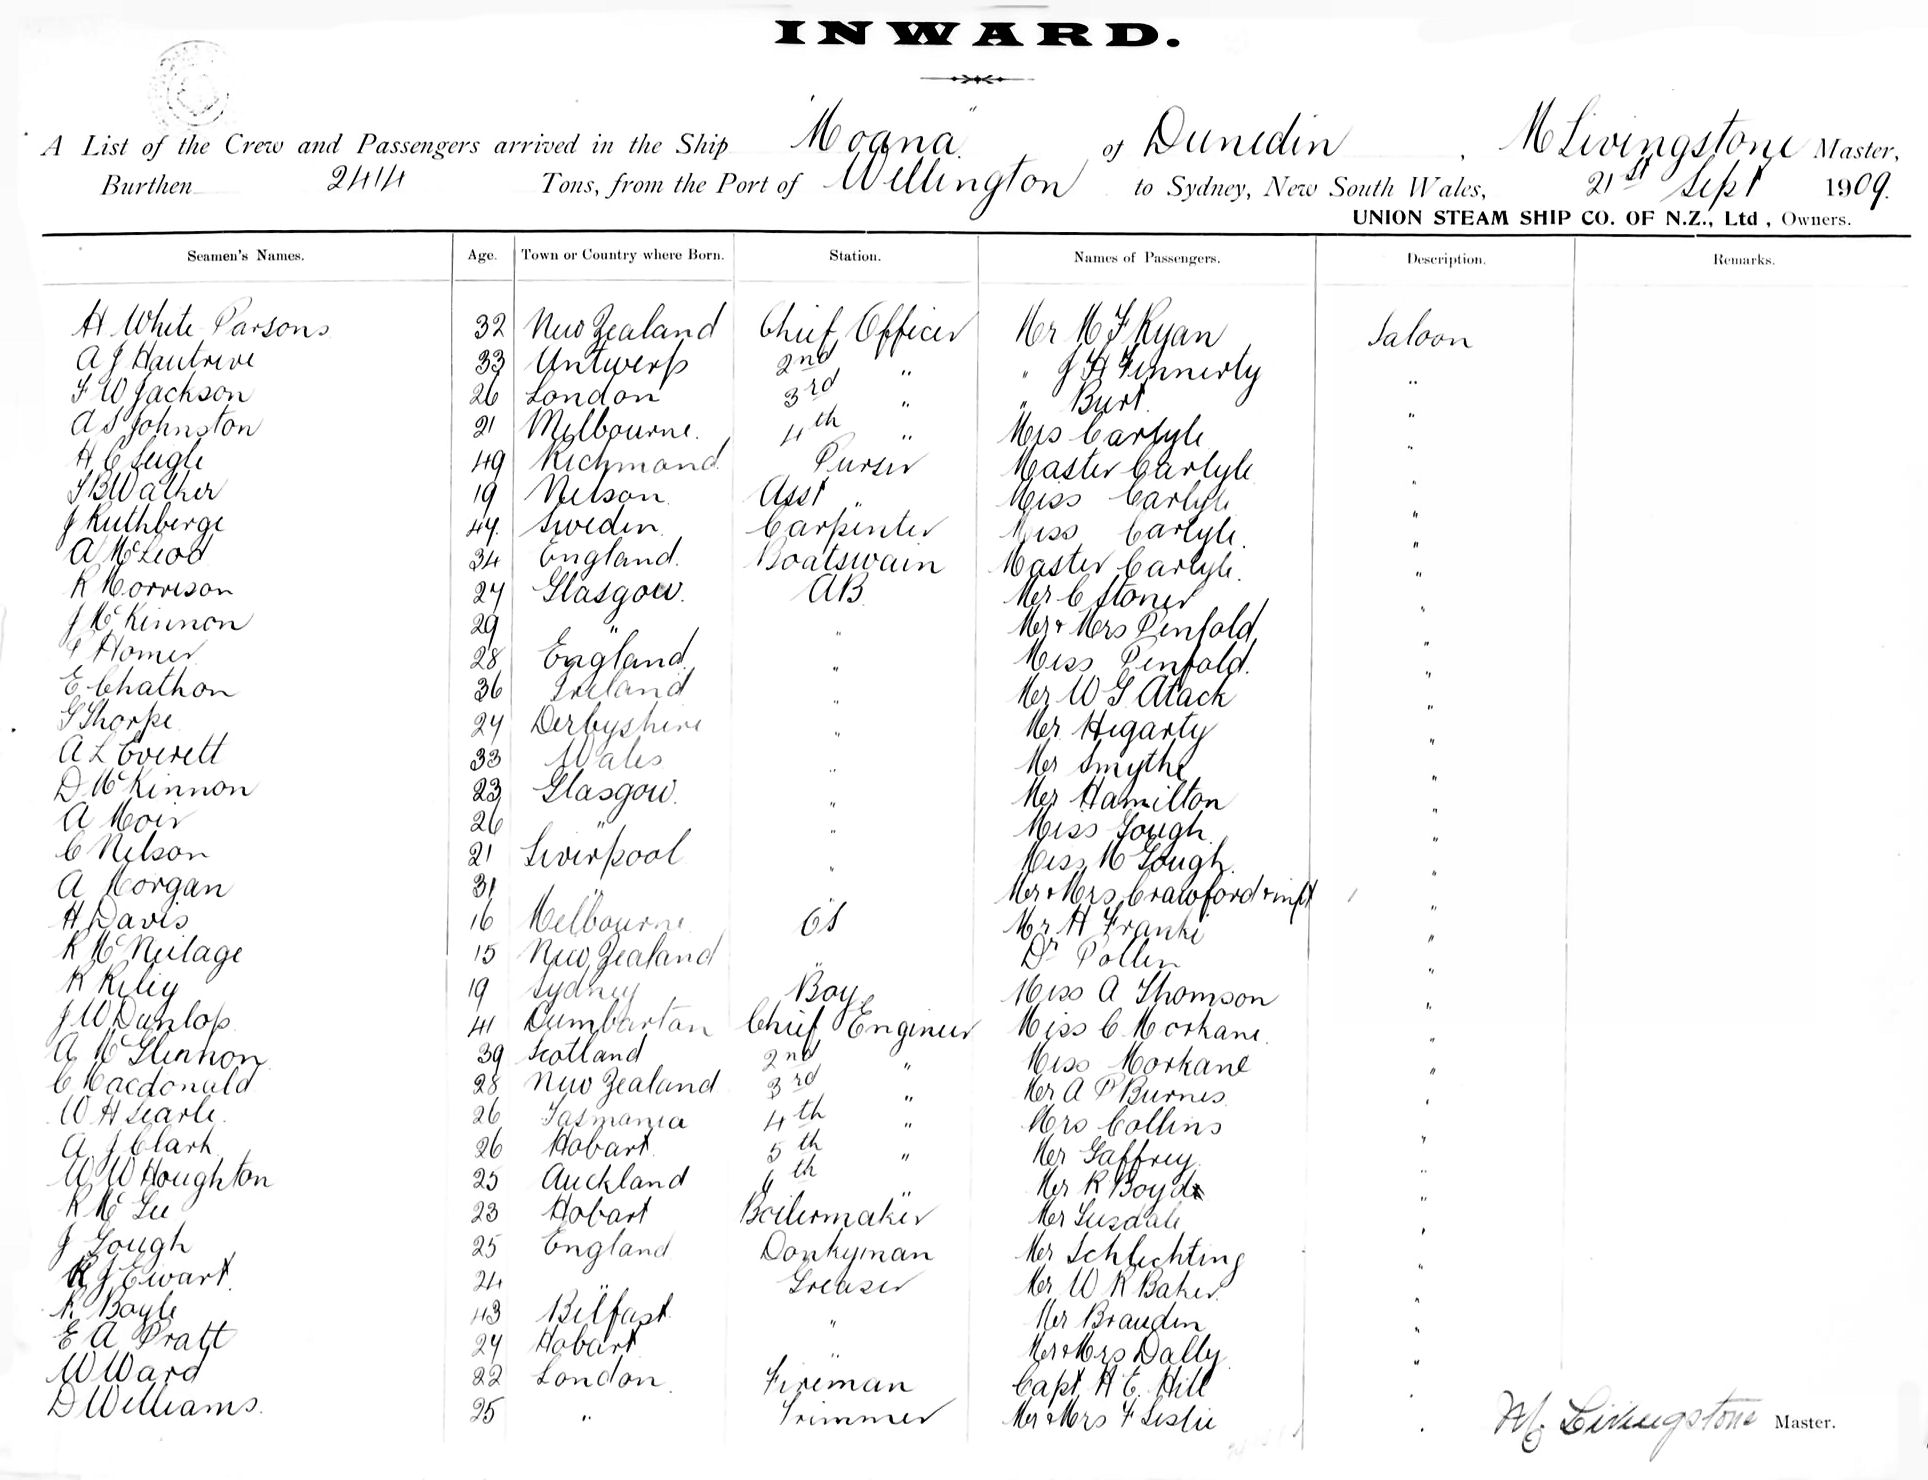 INWARD.
A List of the Crew and Passengers arrived in the Ship "Moana" of Dunedin, M Livingstone Master,
Burthen 2414 Tons, from the Port of Wellington to Sydney, New South Wales, 21st Sept 1909.
UNION STEAM SHIP CO. OF N.Z., Ltd, Owners.
Seamen's Names. Age. Town or Country where Born. Station. Names of Passengers. Description. Remarks.
H White Parsons 32 New Zealand Chief Officer Mr M F Ryan Saloon
A J Hautrive 33 Antwerp 2nd " " J H Finnerty "
F W Jackson 26 London 3rd " " Burt. "
A S Johnston 21 Melbourne. 4th " Mrs Carlyle "
H C 49 Richmond Purser Master Carlyle "
Walker 19 Nelson Asst " Miss Carlyle "
J Ruthberge 47. Sweden. Carpenter Miss Carlyle. "
A McLeod 34 England. Boatswain Master Carlyle. "
R Morrison 27 Glasgow. AB Mr C Stoner "
J McKinnon 29 " " Mr & Mrs Penfold "
Homer 28 England " Miss Penfold. "
E Chathon 36 Ireland " Mr W G Atack "
G Thorpe 27 Derbyshire " Mr Hegarty "
A L Everett 33 Wales " Mr Smythe "
D McKinnon 23 Glasgow. " Mr Hamilton "
A Moir 26 " " Miss Gough "
C Nelson 21 Liverpool " Miss M Gough. "
A Morgan 31 " " Mr & Mrs Crawford & inft "
H Davis 16 Melbourne OS Mr H Franki "
R McNeilage 15 New Zealand " Dr Pollen "
R Riley 19 Sydney Boy Miss A Thomson "
J W Dunlop 41 Dumbarton Chief Engineer Miss C Morkane. "
A McGlennon 39 Scotland 2nd " Miss Morkane "
C Macdonald 28 New Zealand 3rd " Mr A P Burnes "
W H Searle. 26 Tasmania 4th " Mrs Collins "
A J Clark 26 Hobart 5th " Mr Gaffrey "
W W Houghton 25 Auckland 6th " Mr R Boyd "
R McGee 23 Hobart Boilermaker Mr "
J Gough 25 England Donkyman Mr Schlechting "
R J Ewart. 24 " Greaser Mr W R Baker "
R Boyle 43 Belfast " Mr Brandin "
E A Pratt 27 Hobart " Mr & Mrs Dally "
W Ward 22 London. Fireman Capt H E Hill "
D Williams. 25 " Trimmer Mr & Mrs F Leslie "
M Livingstone Master.